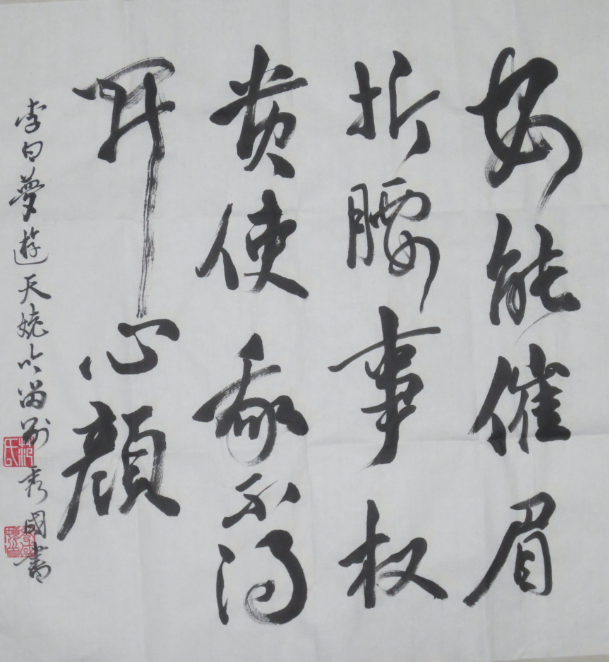 安能催眉
折腰事权
贵使我不得
开心顏
李白夢遊天姥吟留别秀國書